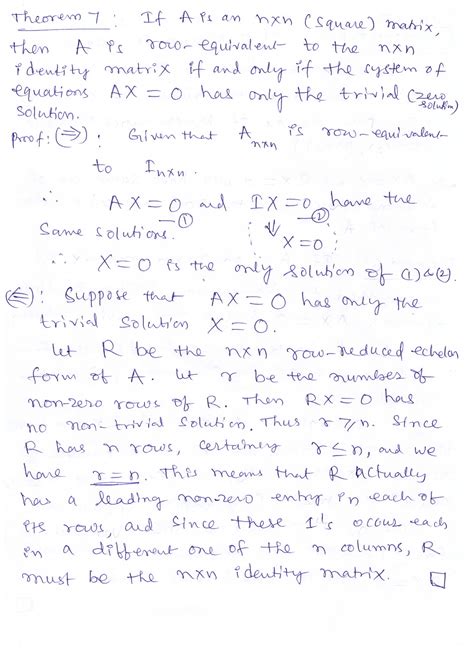 Theorem 7 : If A is an n×n (square) matrix,
then A is row-equivalent to the n×n
identity matrix if and only if the system of
equations AX = 0 has only the trivial (zero solution)
Solution.
Proof: (⇒) : Given that A n×n is row-equivalent
to I n×n.
∴ AX = 0 —① and IX = 0 —② have the
Same solutions. ⇓ X = 0
∴ X = 0 is the only solution of (1) & (2).
(⇐): Suppose that AX = 0 has only the
trivial solution X = 0.
Let R be the n×n row-reduced echelon
form of A. Let r be the number of
non-zero rows of R. Then RX = 0 has
no non-trivial solution. Thus r ⩾ n. Since
R has n rows, certainly r ≤ n, and we
have r = n. This means that R actually
has a leading non-zero entry in each of
its rows, and since these 1's occur each
in a different one of the n columns, R
must be the n×n identity matrix. □